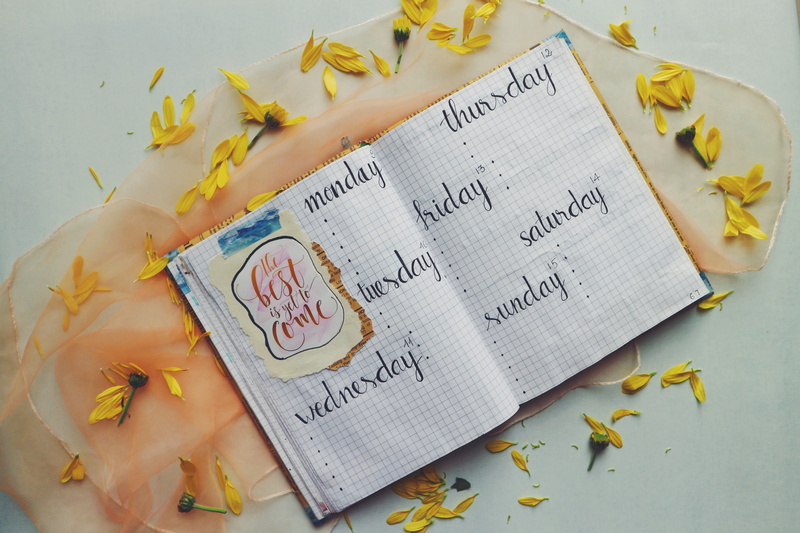 the
best
is yet to
come
monday 9
tuesday 10
wednesday 11
thursday 12
friday 13
saturday 14
sunday 15
67